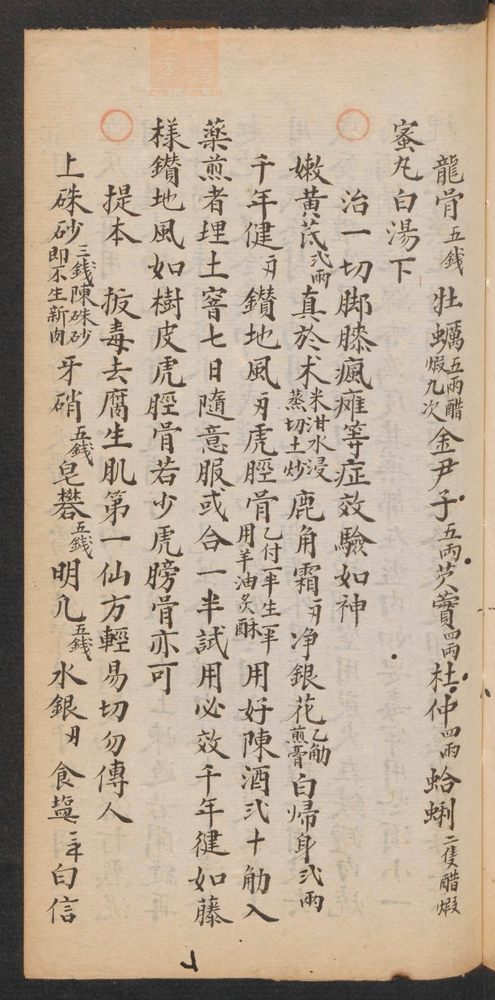 龍骨五錢 牡蠣五兩醋煆九次 金尹子五兩 芡實四兩 杜仲四兩 蛤蜊二隻醋煆
蜜丸白湯下
治一切脚膝瘋癱等症效驗如神
嫩黃芪弍兩 真於术米泔水浸蒸切土炒 鹿角霜 净銀花乙觔煎膏 白帰身弍兩
千年健 鑽地風 虎脛骨乙付一半生一半用羊油炙酥 用好陳酒弍十觔入
薬煎者埋土窨七日隨意服或合一半試用必效千年健如藤
様鑚地風如樹皮虎脛骨若少虎膀骨亦可
提本 扳毒去腐生肌第一仙方輕易切勿傳人
上硃砂三錢陳硃砂即不生新肉 牙硝五錢 皂礬五錢 明凢五錢 水銀 食塩 白信